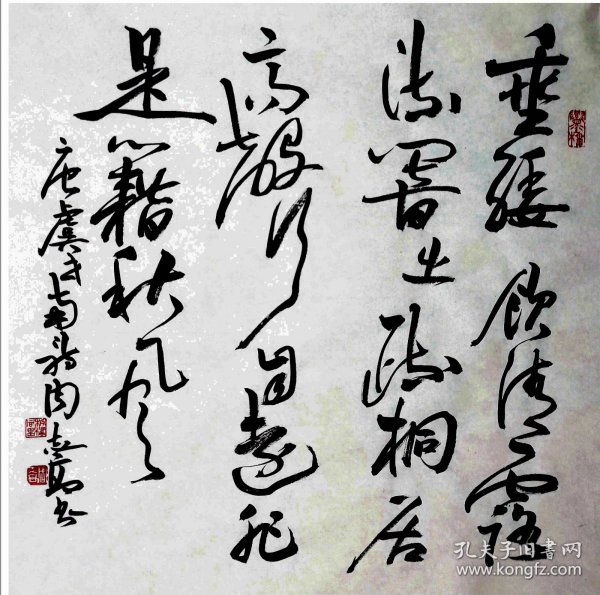 垂緌飲清露
流響出疏桐居
高聲自遠非
是籍秋風
唐虞世南詩周書
孔夫子旧书网
www.kongfz.com